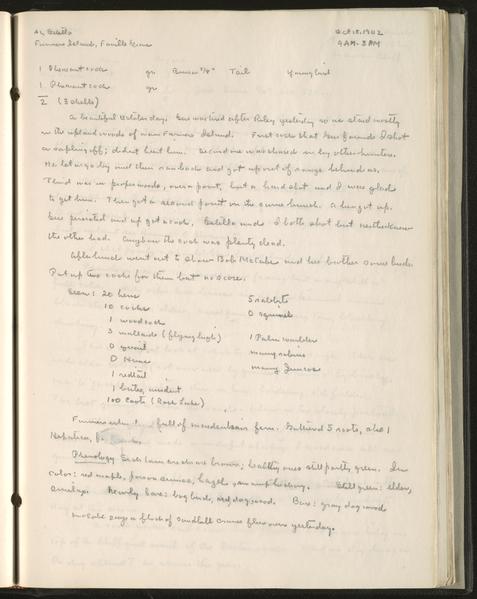 Al, Estella Oct 15, 1942
Farmers Island, Faville Grove 9 AM - 3 PM
1 Pheasant cock gr Tail Young bird
1 Pheasant cock gr
2 (3 shells)
A beautiful October day. Gus was tired after Riley yesterday so we stood mostly
in the upland woods of main Farmers Island. First cock that Gus found I shot
a sapling off; didn't hurt him. Second one was chased in by other hunters.
He let a dog and then ran back and got up out of range behind us.
Third was in proper woods, over a point, but a hard shot and I was glad
to get him. Then got a second point on the same bunch. A hen got up.
Gus persisted and up got a cock. Estella and I both shot but neither knew
the other had. Anyhow the cock was plenty dead.
After lunch went out to show Bob McCabe and his brother some birds.
Put up two cocks for them but no score.
Seen: 20 hens 5 rabbits
10 cocks 0 squirrels
1 woodcock
3 mallards (flying high) 1 Palm warbler
0 quail many robins
0 Huns many Juncos
1 redtail
1 buteo, unident
100 Coots (Rock Lake)
Farmers full of maidenhair fern. Gathered 5 roots, also 1
Hepatica,
Phenology: Such are brown; healthy ones still partly green. In
color: red maple, poison sumac, hazel, hickory. Still green: elder,
Nearly bare: bog birch, red dogwood. Bare: gray dogwood
McCabe says a flock of sandhill cranes flew over yesterday.